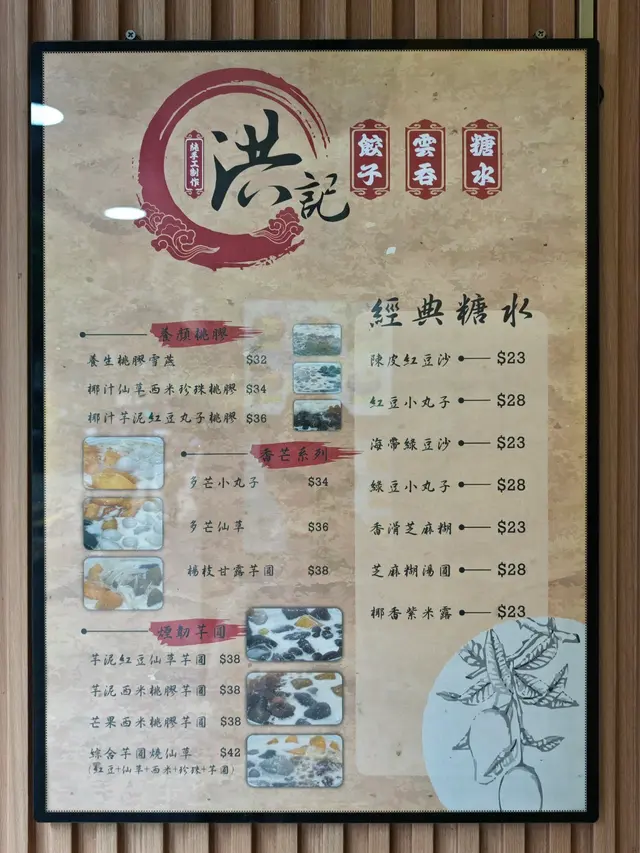 純手工制作
洪記
餃子
雲吞
糖水
養顏桃膠
養生桃膠雪燕 $32
椰汁仙草西米珍珠桃膠 $34
椰汁芋泥紅豆丸子桃膠 $36
香芒系列
多芒小丸子 $34
多芒仙草 $36
楊枝甘露芋圓 $38
煙韌芋圓
芋泥紅豆仙草芋圓 $38
芋泥西米桃膠芋圓 $38
芒果西米桃膠芋圓 $38
綜合芋圓燒仙草 $42
(紅豆+仙草+西米+珍珠+芋圓)
經典糖水
陳皮紅豆沙 $23
紅豆小丸子 $28
海帶綠豆沙 $23
綠豆小丸子 $28
香滑芝麻糊 $23
芝麻糊湯圓 $28
椰香紫米露 $23